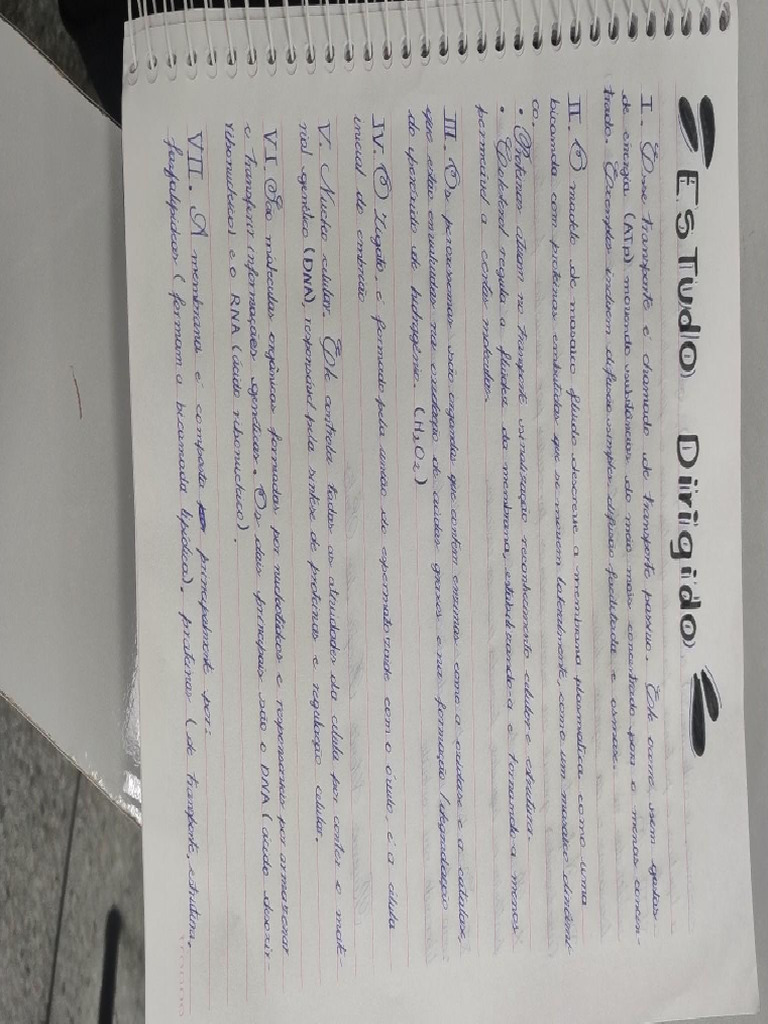 ESTUDO DIRIGIDO
I. Esse transporte é chamado de transporte passivo. Ele ocorre sem gastos
de energia (ATP) movendo substâncias do meio mais concentrado para o menos concen-
trado. Exemplos incluem difusão simples, difusão facilitada e osmose.
II. O modelo de mosaico fluido descreve a membrana plasmática como uma
bicamada com proteínas embutidas que se movem lateralmente, como um mosaico dinâmi-
co.
• Proteínas atuam no transporte sinalização reconhecimento celular e estrutura.
• Colesterol regula a fluidez da membrana, estabilizando-a e tornando-a menos
permeável a certas moléculas.
III. Os peroxissomos são organelas que contém enzimas como a oxidase e a catalase,
que estão envolvidas na oxidação de ácidos graxos e na formação/degradação
do peróxido de hidrogênio. (H₂O₂)
IV. O Zigoto, é formado pela união do espermatozoide com o óvulo, é a célula
inicial do embrião
V. Núcleo celular. Ele controla todas as atividades da célula por conter o mate-
rial genético (DNA), responsável pela síntese de proteínas e regulação celular.
VI. São moléculas orgânicas formadas por nucleotídeos e responsáveis por armazenar
e transferir informações genéticas. Os dois principais são o DNA (ácido desoxir-
ribonucleico) e o RNA (ácido ribonucleico).
VII. A membrana é composta principalmente por:
fosfolipídios (formam a bicamada lipídica), proteínas (de transporte, estrutura,